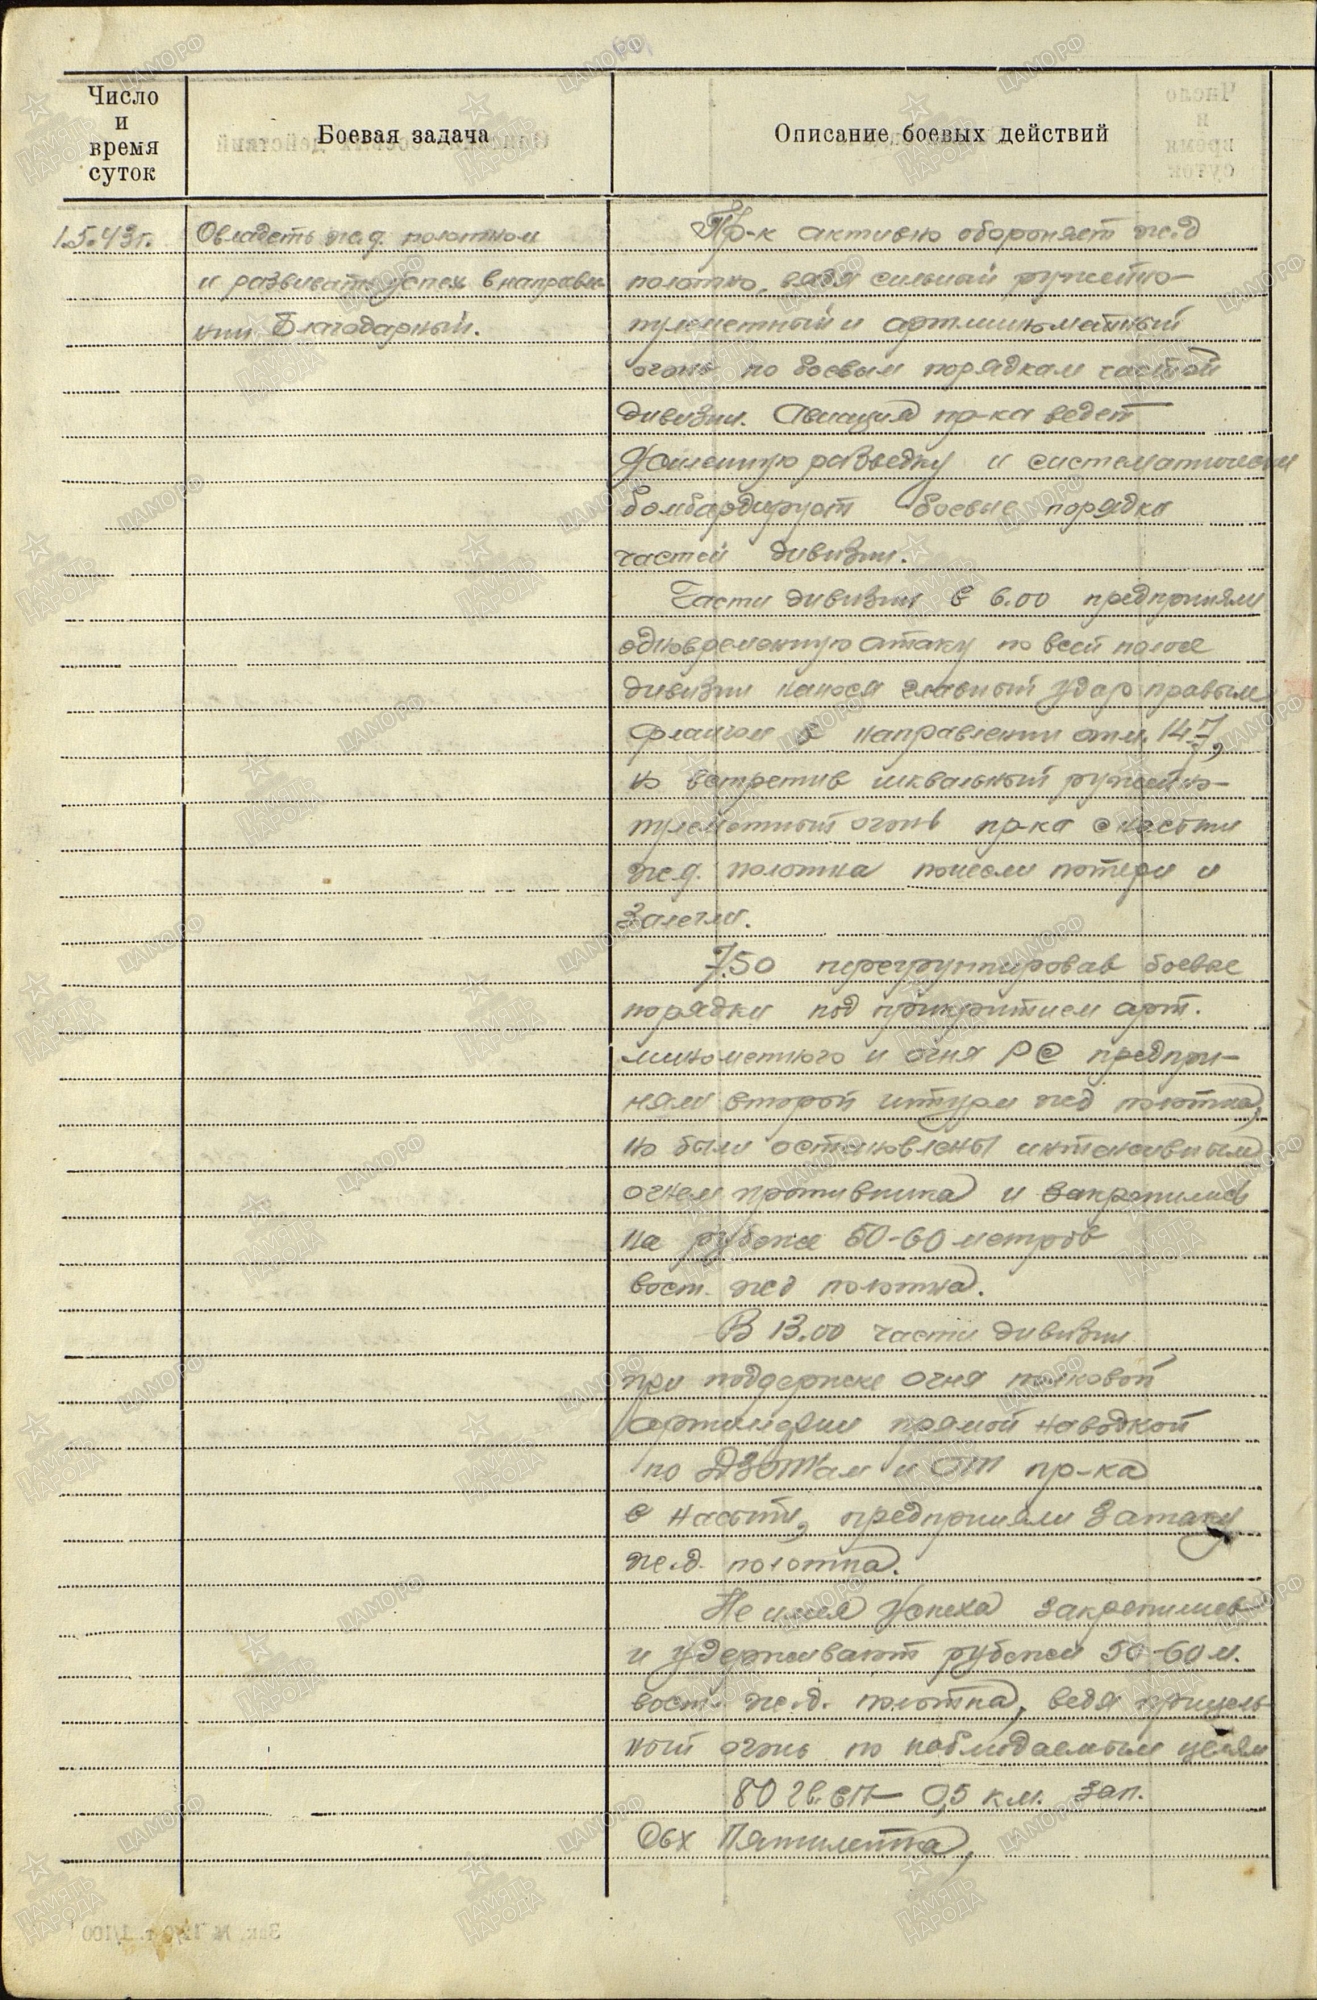 Число
и
время
суток
Боевая задача
Описание боевых действий
1.5.43г.
Овладеть же.д. полотном
и развивать успех в направле-
нии Благодарный.
Пр-к активно обороняет же.д
полотно, ведя сильный ружейно-
пулеметный и артминометный
огонь по боевым порядкам частей
дивизии. Авиация пр-ка ведет
усиленную разведку и систематически
бомбардирует боевые порядки
частей дивизии.
Части дивизии в 6.00 предприняли
одновременную атаку по всей полосе
дивизии нанося главный удар правым
флангом в направлении отм. 14.7,
но встретив шквальный ружейно-
пулеметный огонь пр-ка с насыпи
же.д. полотна понесли потери и
залегли.
7.50 перегруппировав боевые
порядки под прикрытием арт.
минометного и огня РС предпри-
няли второй штурм жед полотна,
но были остановлены интенсивным
огнем противника и закрепились
на рубеже 50-60 метров
вост. жед полотна.
В 13.00 части дивизии
при поддержке огня полковой
артиллерии прямой наводкой
по ДЗОТ'ам и ОТ пр-ка
в насыпи, предприняли 3 атаку
же.д. полотна.
Не имея успеха закрепились
и удерживают рубежи 50-60 м.
вост. же.д. полотна, ведя прицель
ный огонь по наблюдаемым целям
80 гв. сп - 0,5 км. зап.
Свх Пятилетка,
Зак. № т. 1/100
ПАМЯТЬ НАРОДА
ЦАМО.РФ